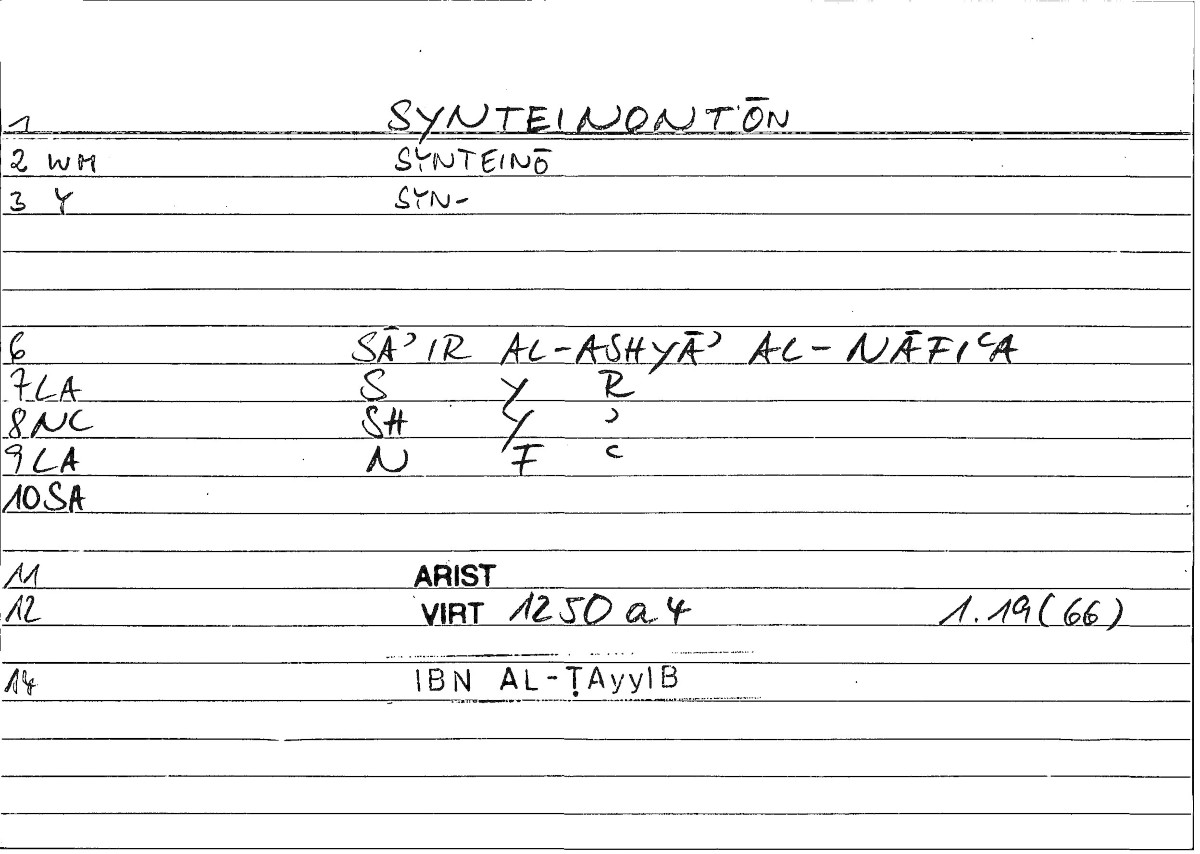 1 SYNTEINONTŌN
2 WM SYNTEINŌ
3 Y SYN-
6 SĀʾIR AL-ASHYĀʾ AL-NĀFIʿA
7 LA S Y R
8 NC SH Y ʾ
9 LA N F ʿ
10 SA
11 ARIST
12 VIRT 1250 a 4 1.19(66)
14 IBN AL-ṬAyyIB